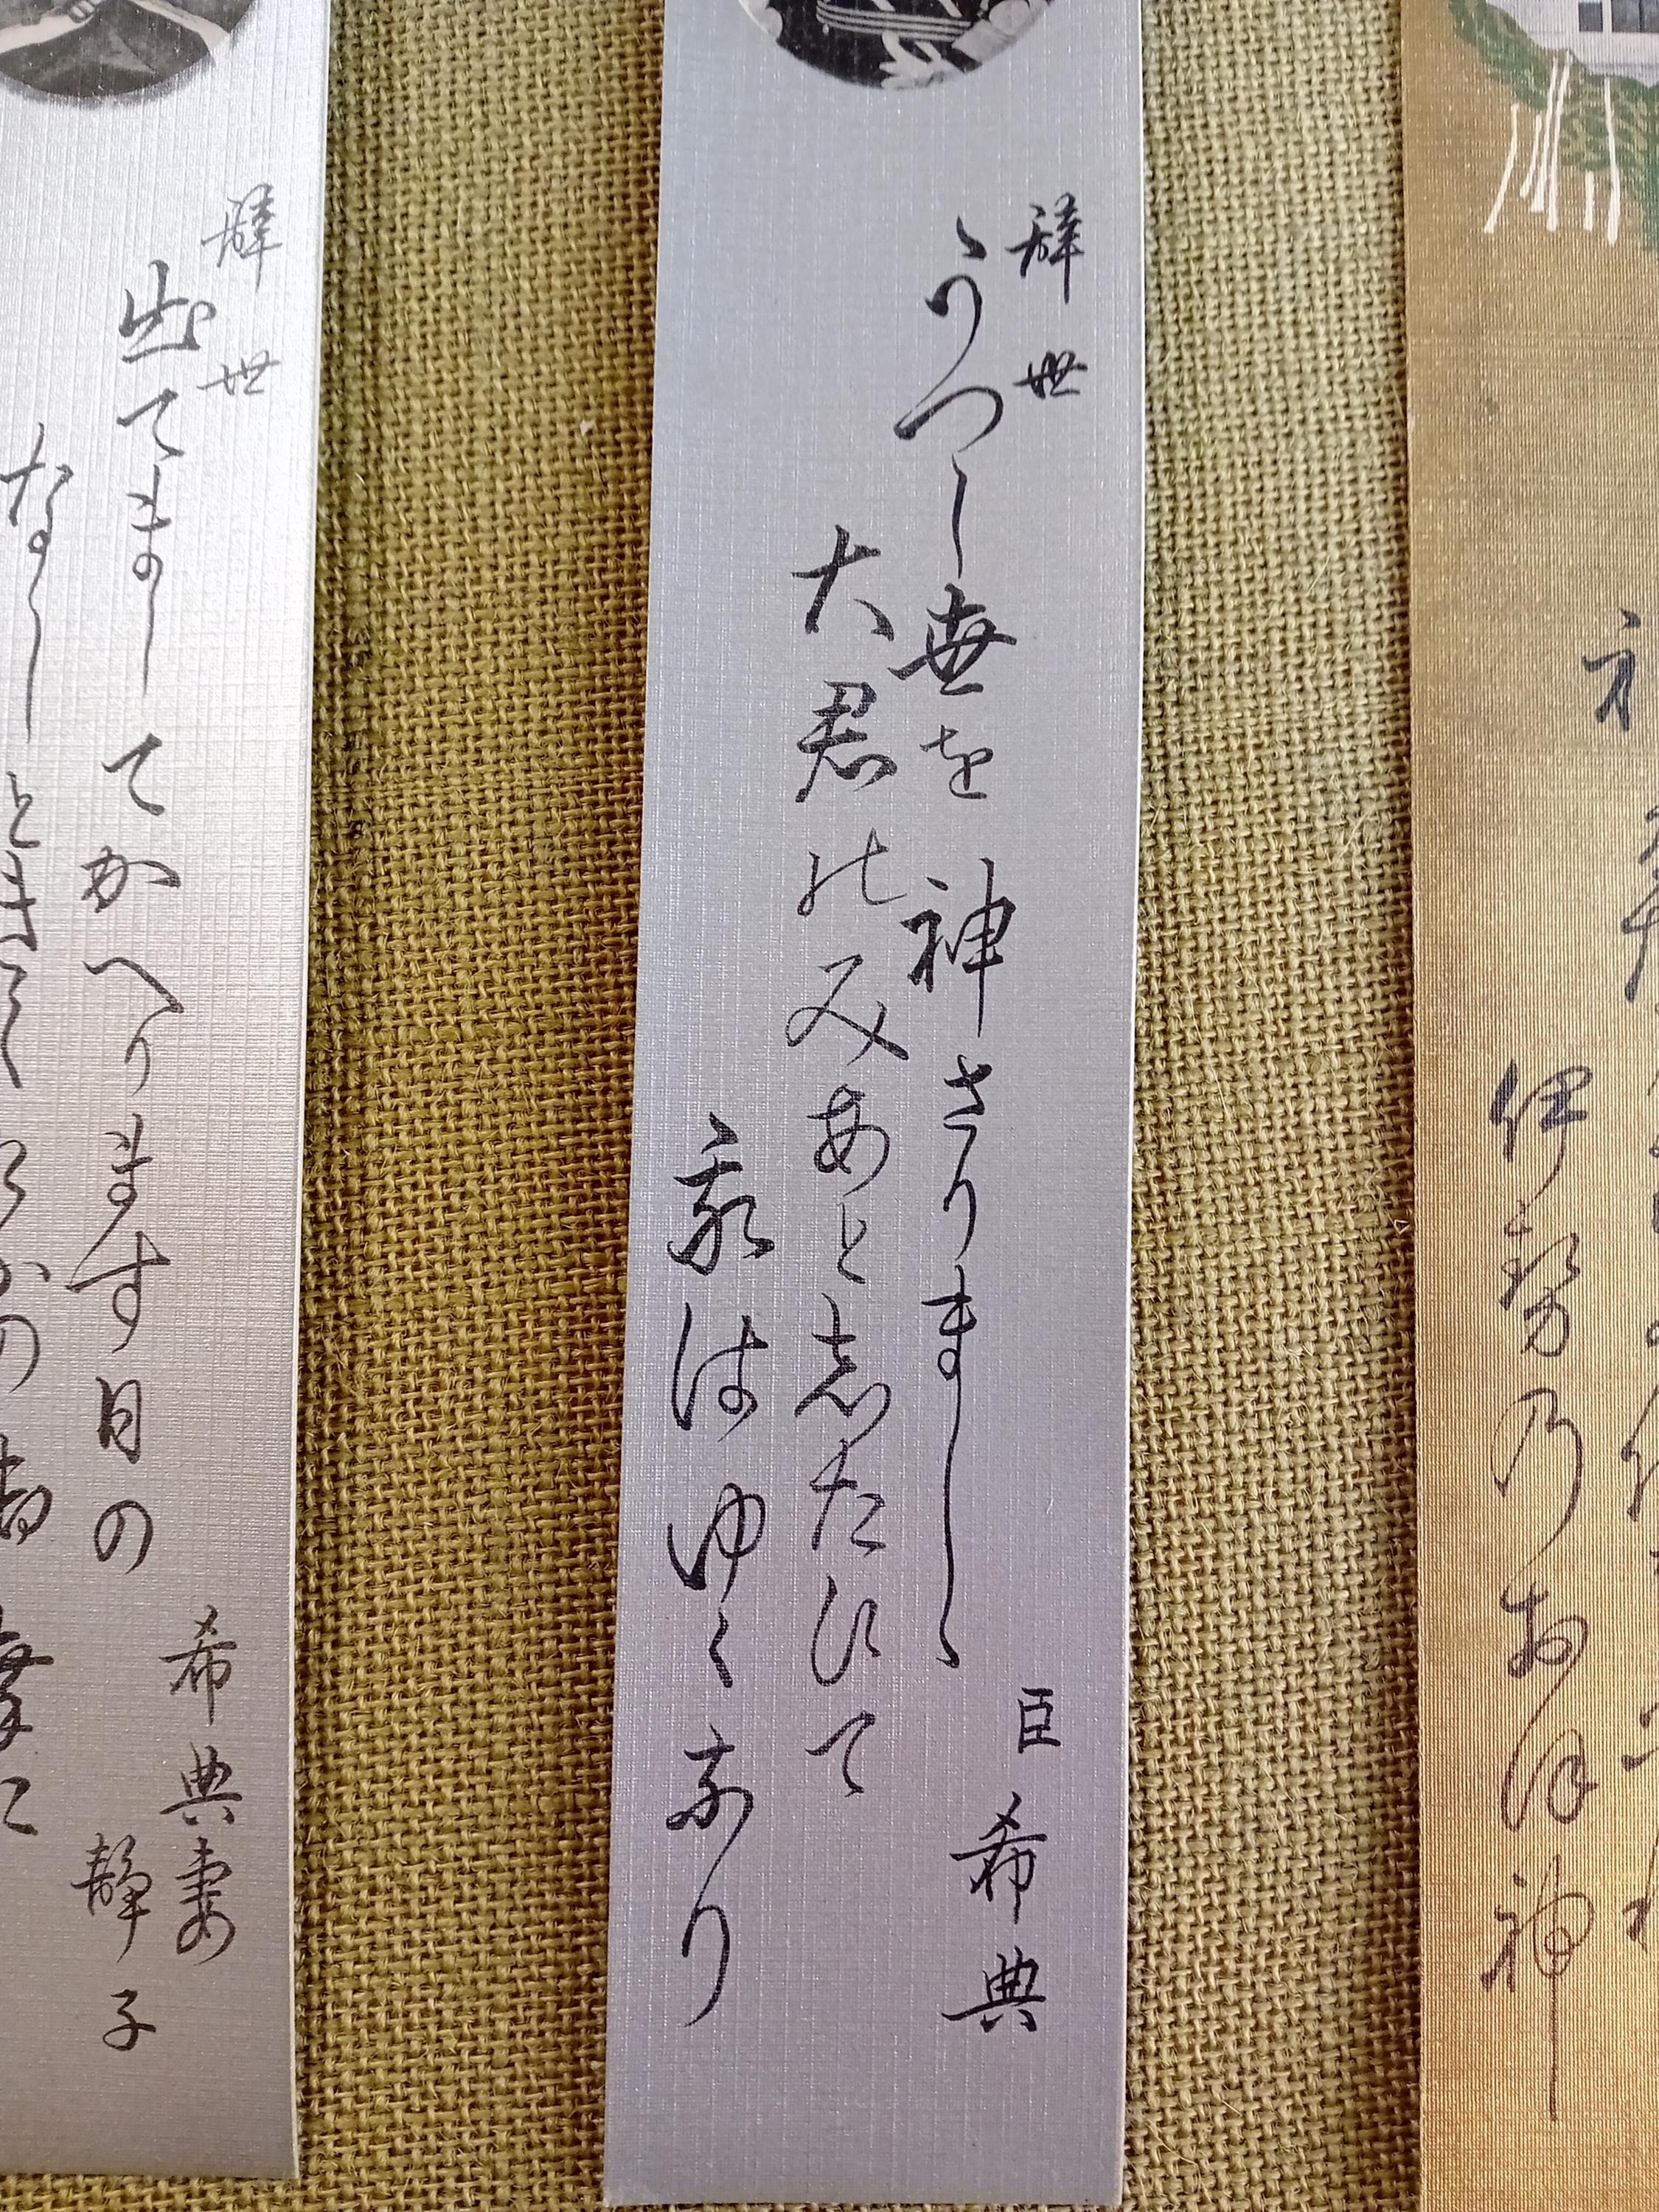 伊勢乃あほ神
辭世
臣希典
うつし世を神さりましゝ
大君のみあと志たひて
我はゆくなり
辭世
希典妻
静子
出てましてかへります日の
なしときく